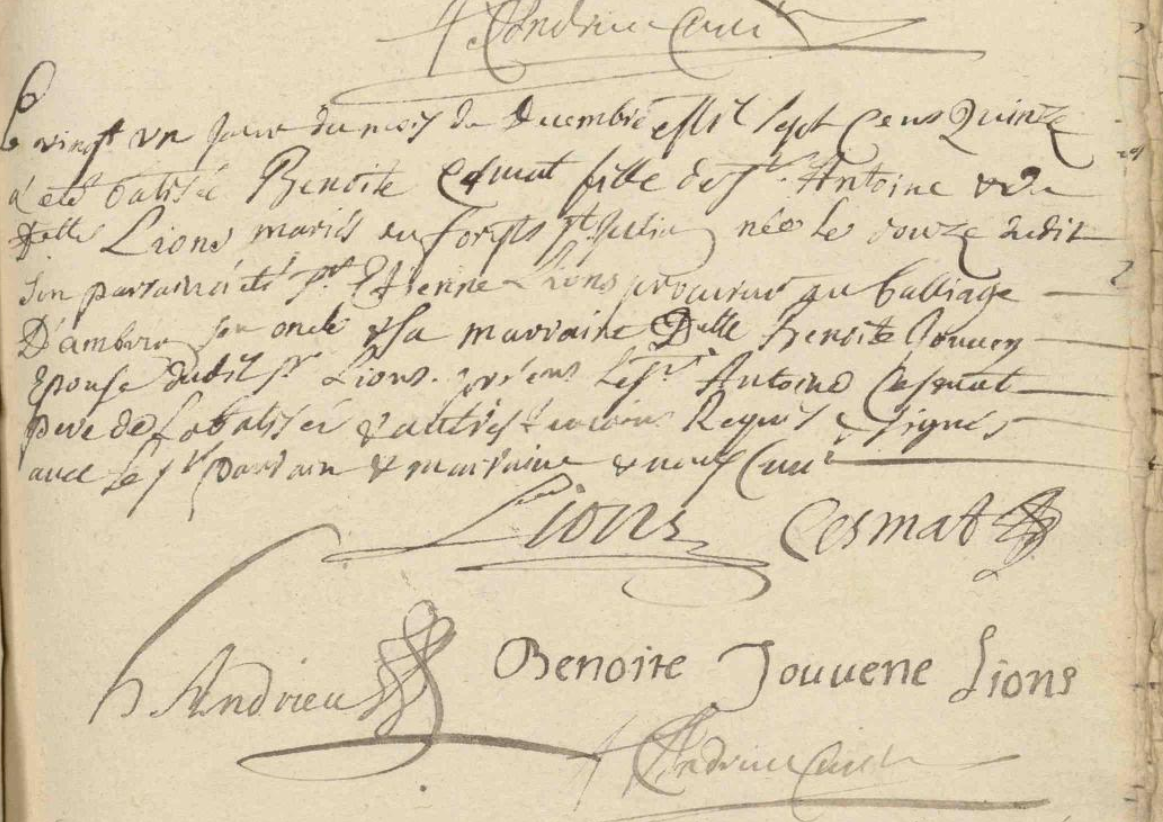 Andrieu Curé
Le vingt un jour du mois de decembre mil sept cens Quinze
a été batisée Benoite Cesmat fille de sr. Antoine & de
Delle Lions mariés née le douze dudit
son parrain été sr. Etienne Lions procureur au balliage
D'ambrun son oncle & sa marraine Delle Benoite Jouven
Epouse dudit sr Lions. presens le sr. Antoine Cesmat
pere de la batisée & autres temoins Requis & signés
avec le sr parrain & marraine & nous Curé
Lions Cesmat
Andrieu Benoite Jouvene Lions
Andrieu Curé